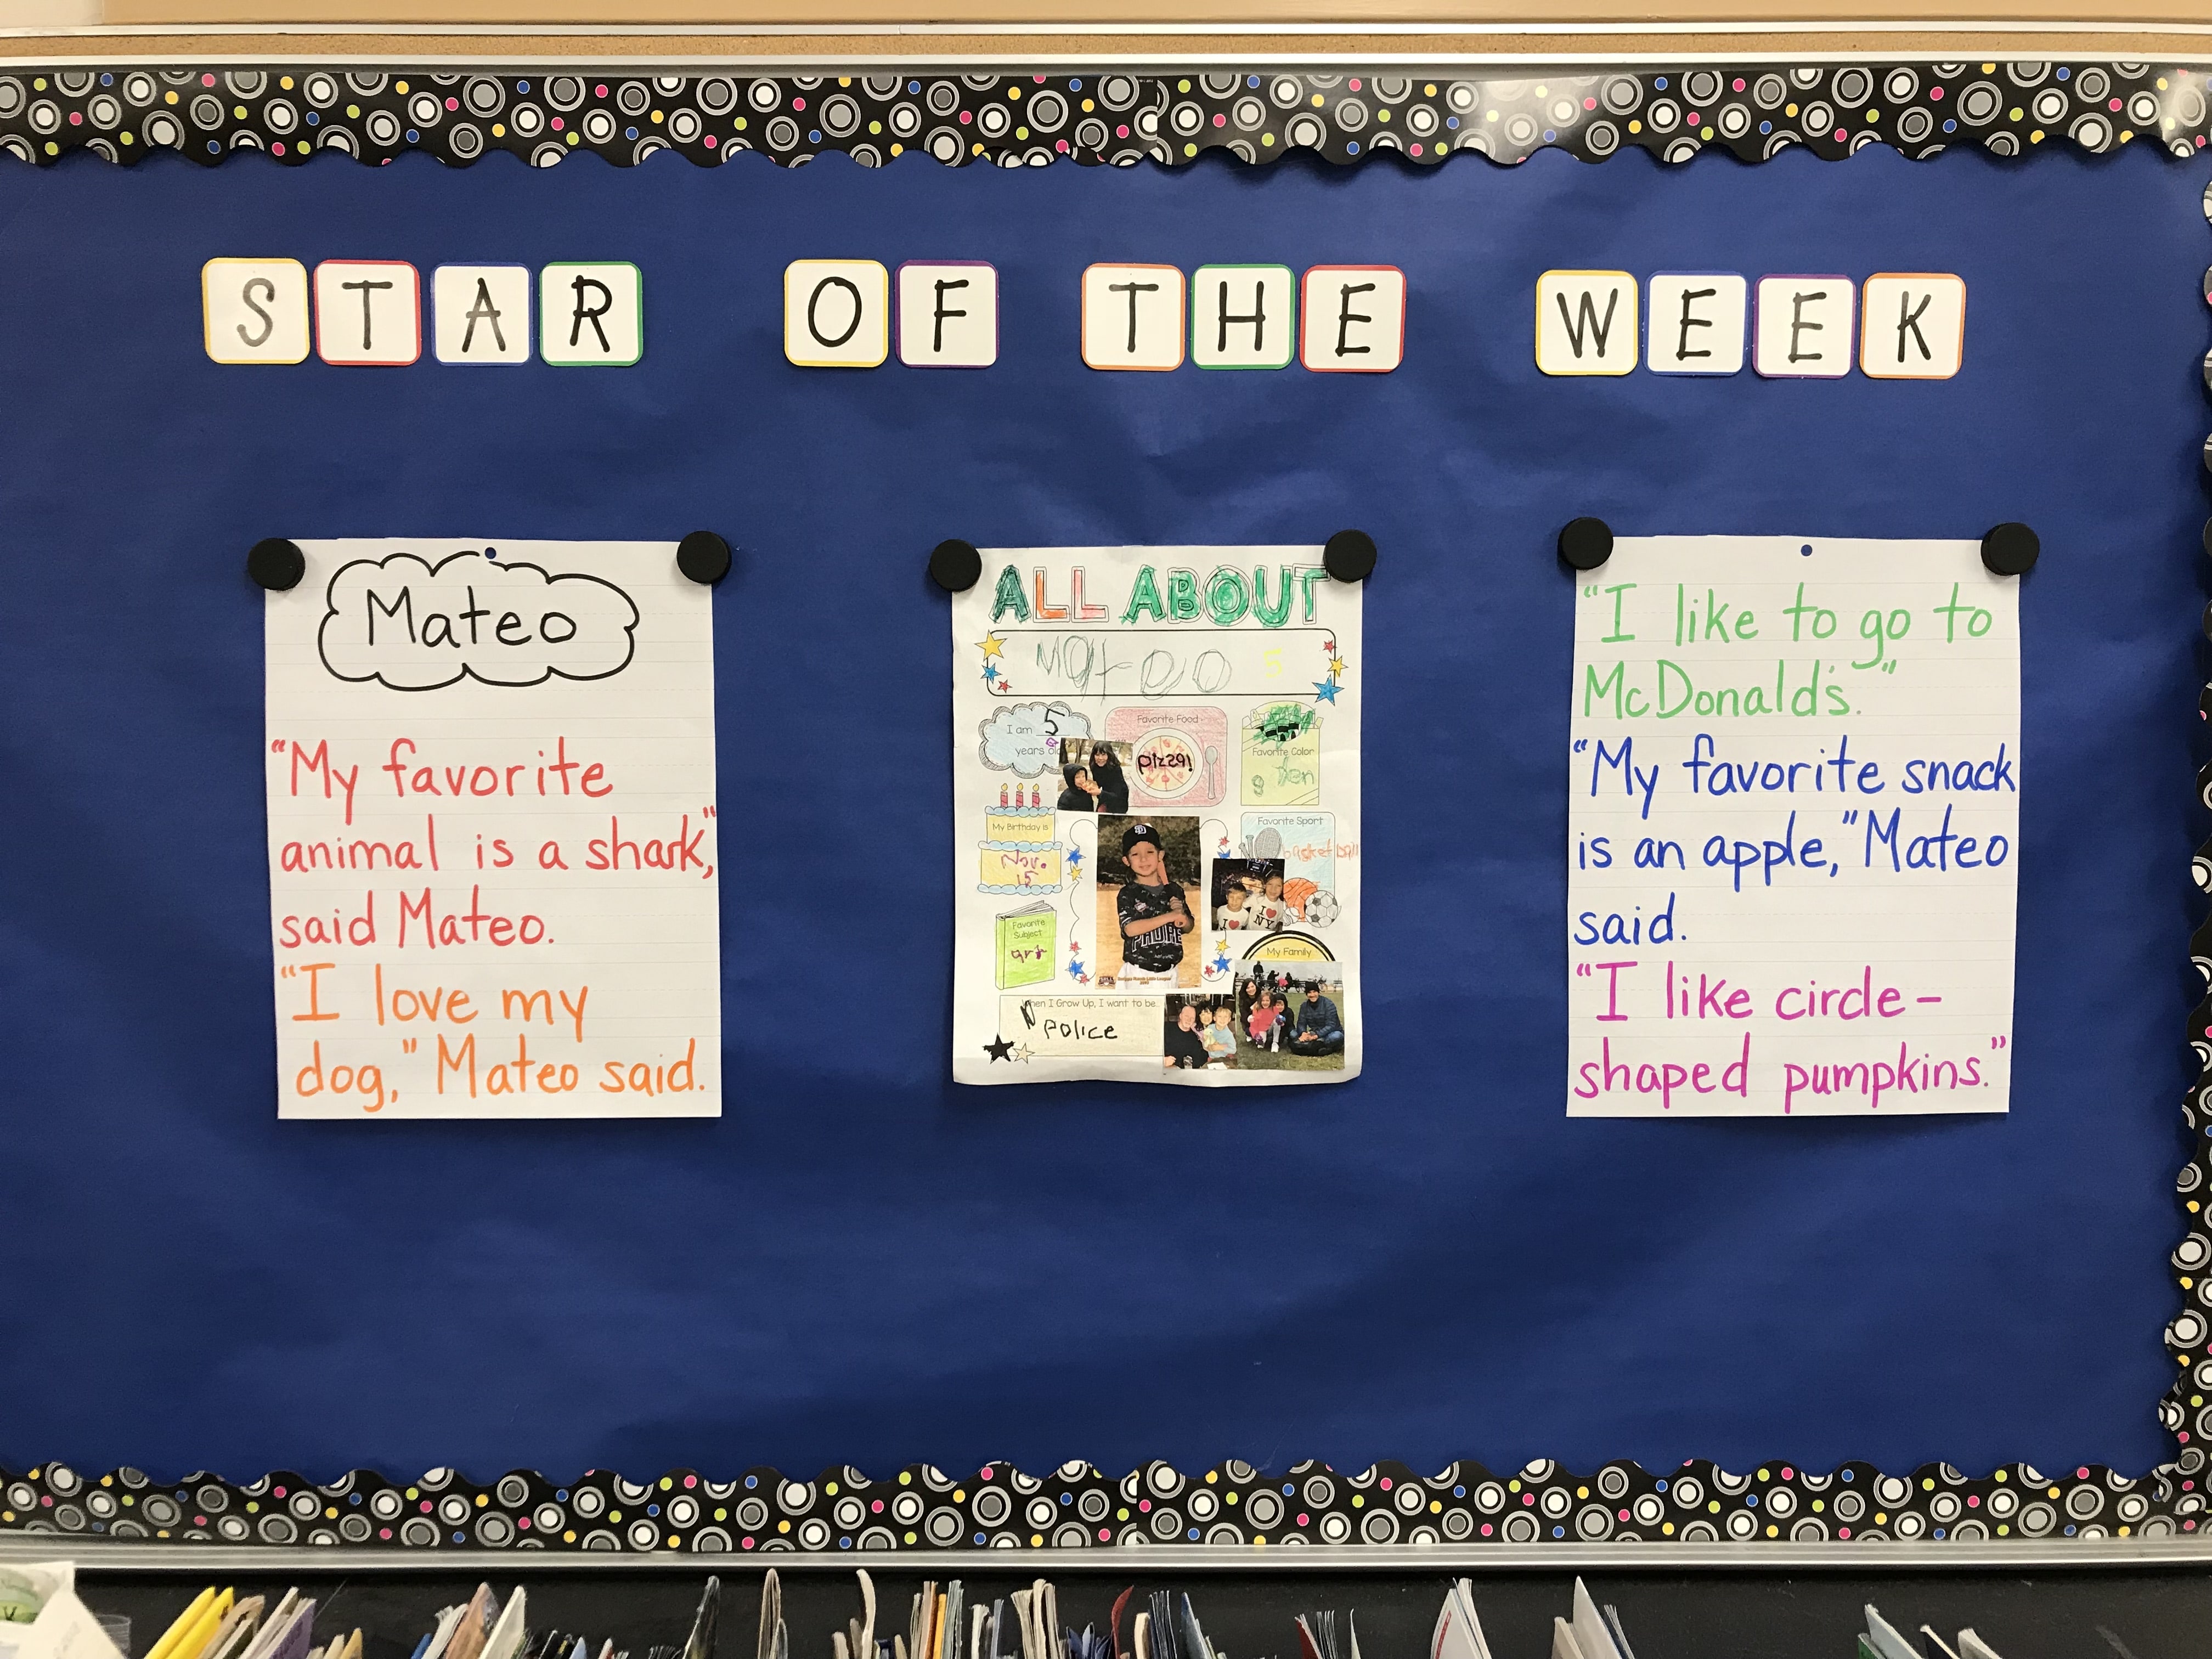 STAR OF THE WEEK
Mateo
"My favorite
animal is a shark,"
said Mateo.
"I love my
dog," Mateo said.
ALL ABOUT
Mateo 5
I am 5
years old
Favorite Food
pizza!
Favorite Color
My Birthday is
Nov.
15
Favorite Sport
basketball
I NY
Favorite
Subject
art
PADRE
My Family
When I Grow Up, I want to be...
Police
"I like to go to
McDonald's."
"My favorite snack
is an apple," Mateo
said.
"I like circle-
shaped pumpkins."